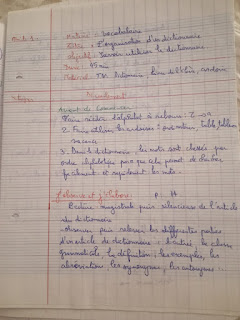 Unité 1
Matière : vocabulaire
Titre : L'organisation d'un dictionnaire
Objectif : Savoir utiliser le dictionnaire
Durée : 45 min
Matériel : TN, dictionnaire, livre de l'élève, ardoise
Avant de commencer
1. Faire réciter l'alphabet à rebours : Z → A
2. Faire utiliser les ardoises : table
3. Dans le dictionnaire, les mots sont classés par
ordre alphabétique parce que cela permet de chercher
facilement et rapidement les mots.
J'observe et j'élabore : P : H
Lecture magistrale puis silencieuse de l'article
du dictionnaire
Observer puis relever les différentes parties
d'un article de dictionnaire : l'entrée, la classe
grammaticale, la définition, les exemples, les
abréviations, les synonymes, les antonymes